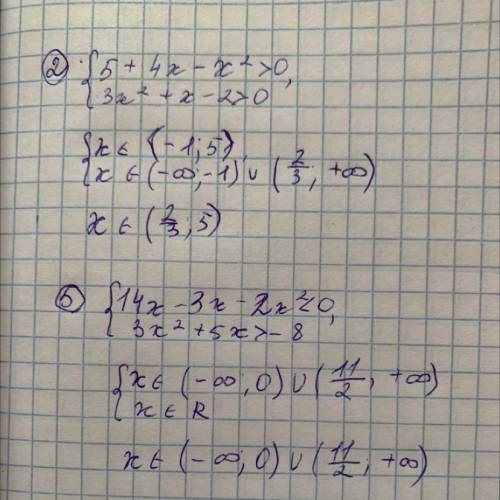 ② { 5 + 4x - x² > 0,
3x² + x - 2 > 0
{ x ∈ (-1; 5),
x ∈ (-∞; -1) ∪ (2/3; +∞)
x ∈ (2/3; 5)
⑤ { 14x - 3x - 2x² < 0,
3x² + 5x > -8
{ x ∈ (-∞; 0) ∪ (11/2; +∞)
x ∈ R
x ∈ (-∞; 0) ∪ (11/2; +∞)